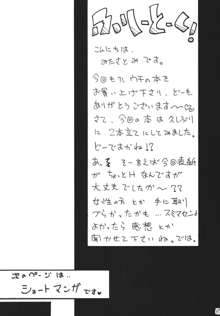 ふりーとーく!
こんにちは、
みたさとみです。
今回もウチの本を
お買い上げ下さり、どーも
ありがとうございます〜
さて、今回の本は久しぶり
に2本立てにしてみました。
どーですかね!?
あ。そーいえば今回表紙
がちょっとHなんですが
大丈夫でしたか〜??
女性の方とか手に取り
づらかったかも…スミマセン
よかったら感想とか
聞かせて下さいね。では。
次のページは…
ショートマンガです♥